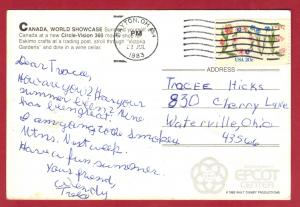 CANADA, WORLD SHOWCASE
Canada at a new Circle-Vision 360
Eskimo crafts at a trading post, stroll through "Victoria
Gardens" and dine in a wine cellar.
DAYTON, OH
PM
1983
USA 20c
Dear Tracee,
How are you? Has your
summer been? Mine
has been great.
I am going to Smokey
Mtns. Next week.
Have a fun summer.
Your friend,
Wendy
ADDRESS
Tracee Hicks
830 Cherry Lane
Waterville, Ohio
43566
EPCOT
© 1982 WALT DISNEY PRODUCTIONS